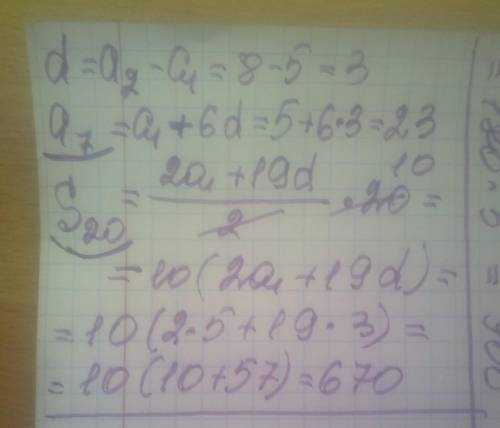 d = a₂ - a₁ = 8 - 5 = 3
a₇ = a₁ + 6d = 5 + 6·3 = 23
S₂₀ = (2a₁ + 19d)/2 · 20 10 =
= 10(2a₁ + 19d) =
= 10(2·5 + 19·3) =
= 10(10 + 57) = 670